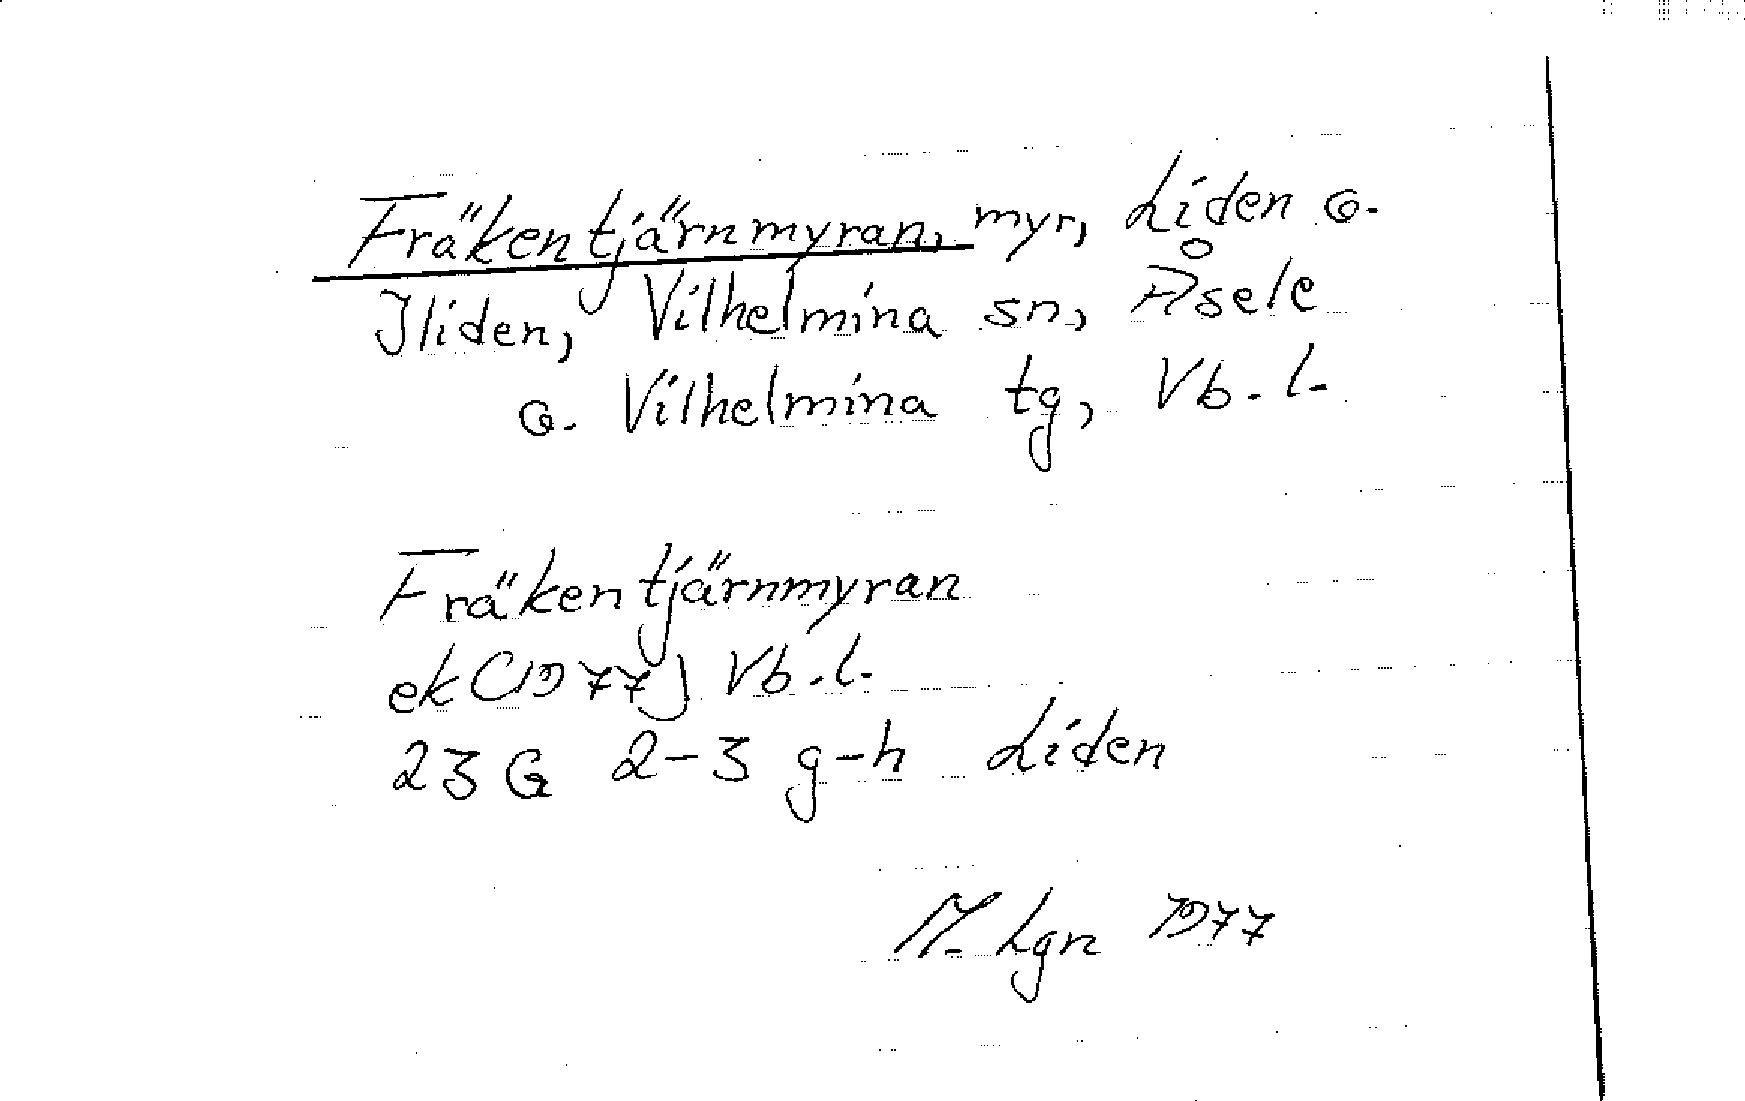 Fräkentjärnmyran, myr, Liden o.
Iliden, Vilhelmina sn, Åsele
o. Vilhelmina tg, Vb. l.
Fräkentjärnmyran
ek (1977) Vb. l.
23 G 2-3 g-h Liden
M. Lgn 1977